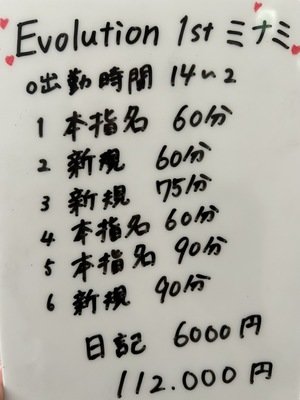 Evolution 1st ミナミ
○出勤時間 14〜2
1 本指名 60分
2 新規 60分
3 新規 75分
4 本指名 60分
5 本指名 90分
6 新規 90分
日記 6000円
112.000円